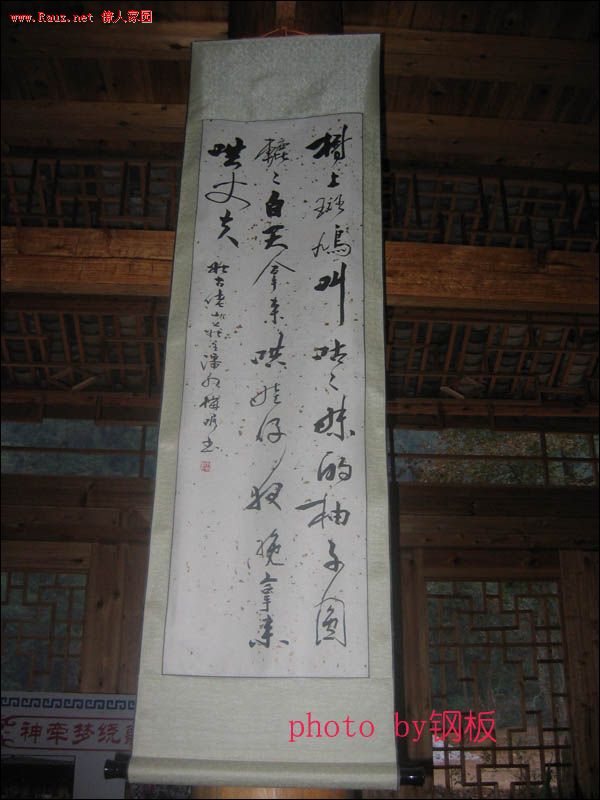 www.Rauz.net 僚人家园
树上斑鸠叫咕々妹的柚子圆
辘々白天拿来哄娃仔夜晚拿来
哄丈夫
神牵梦绕
photo by钢板